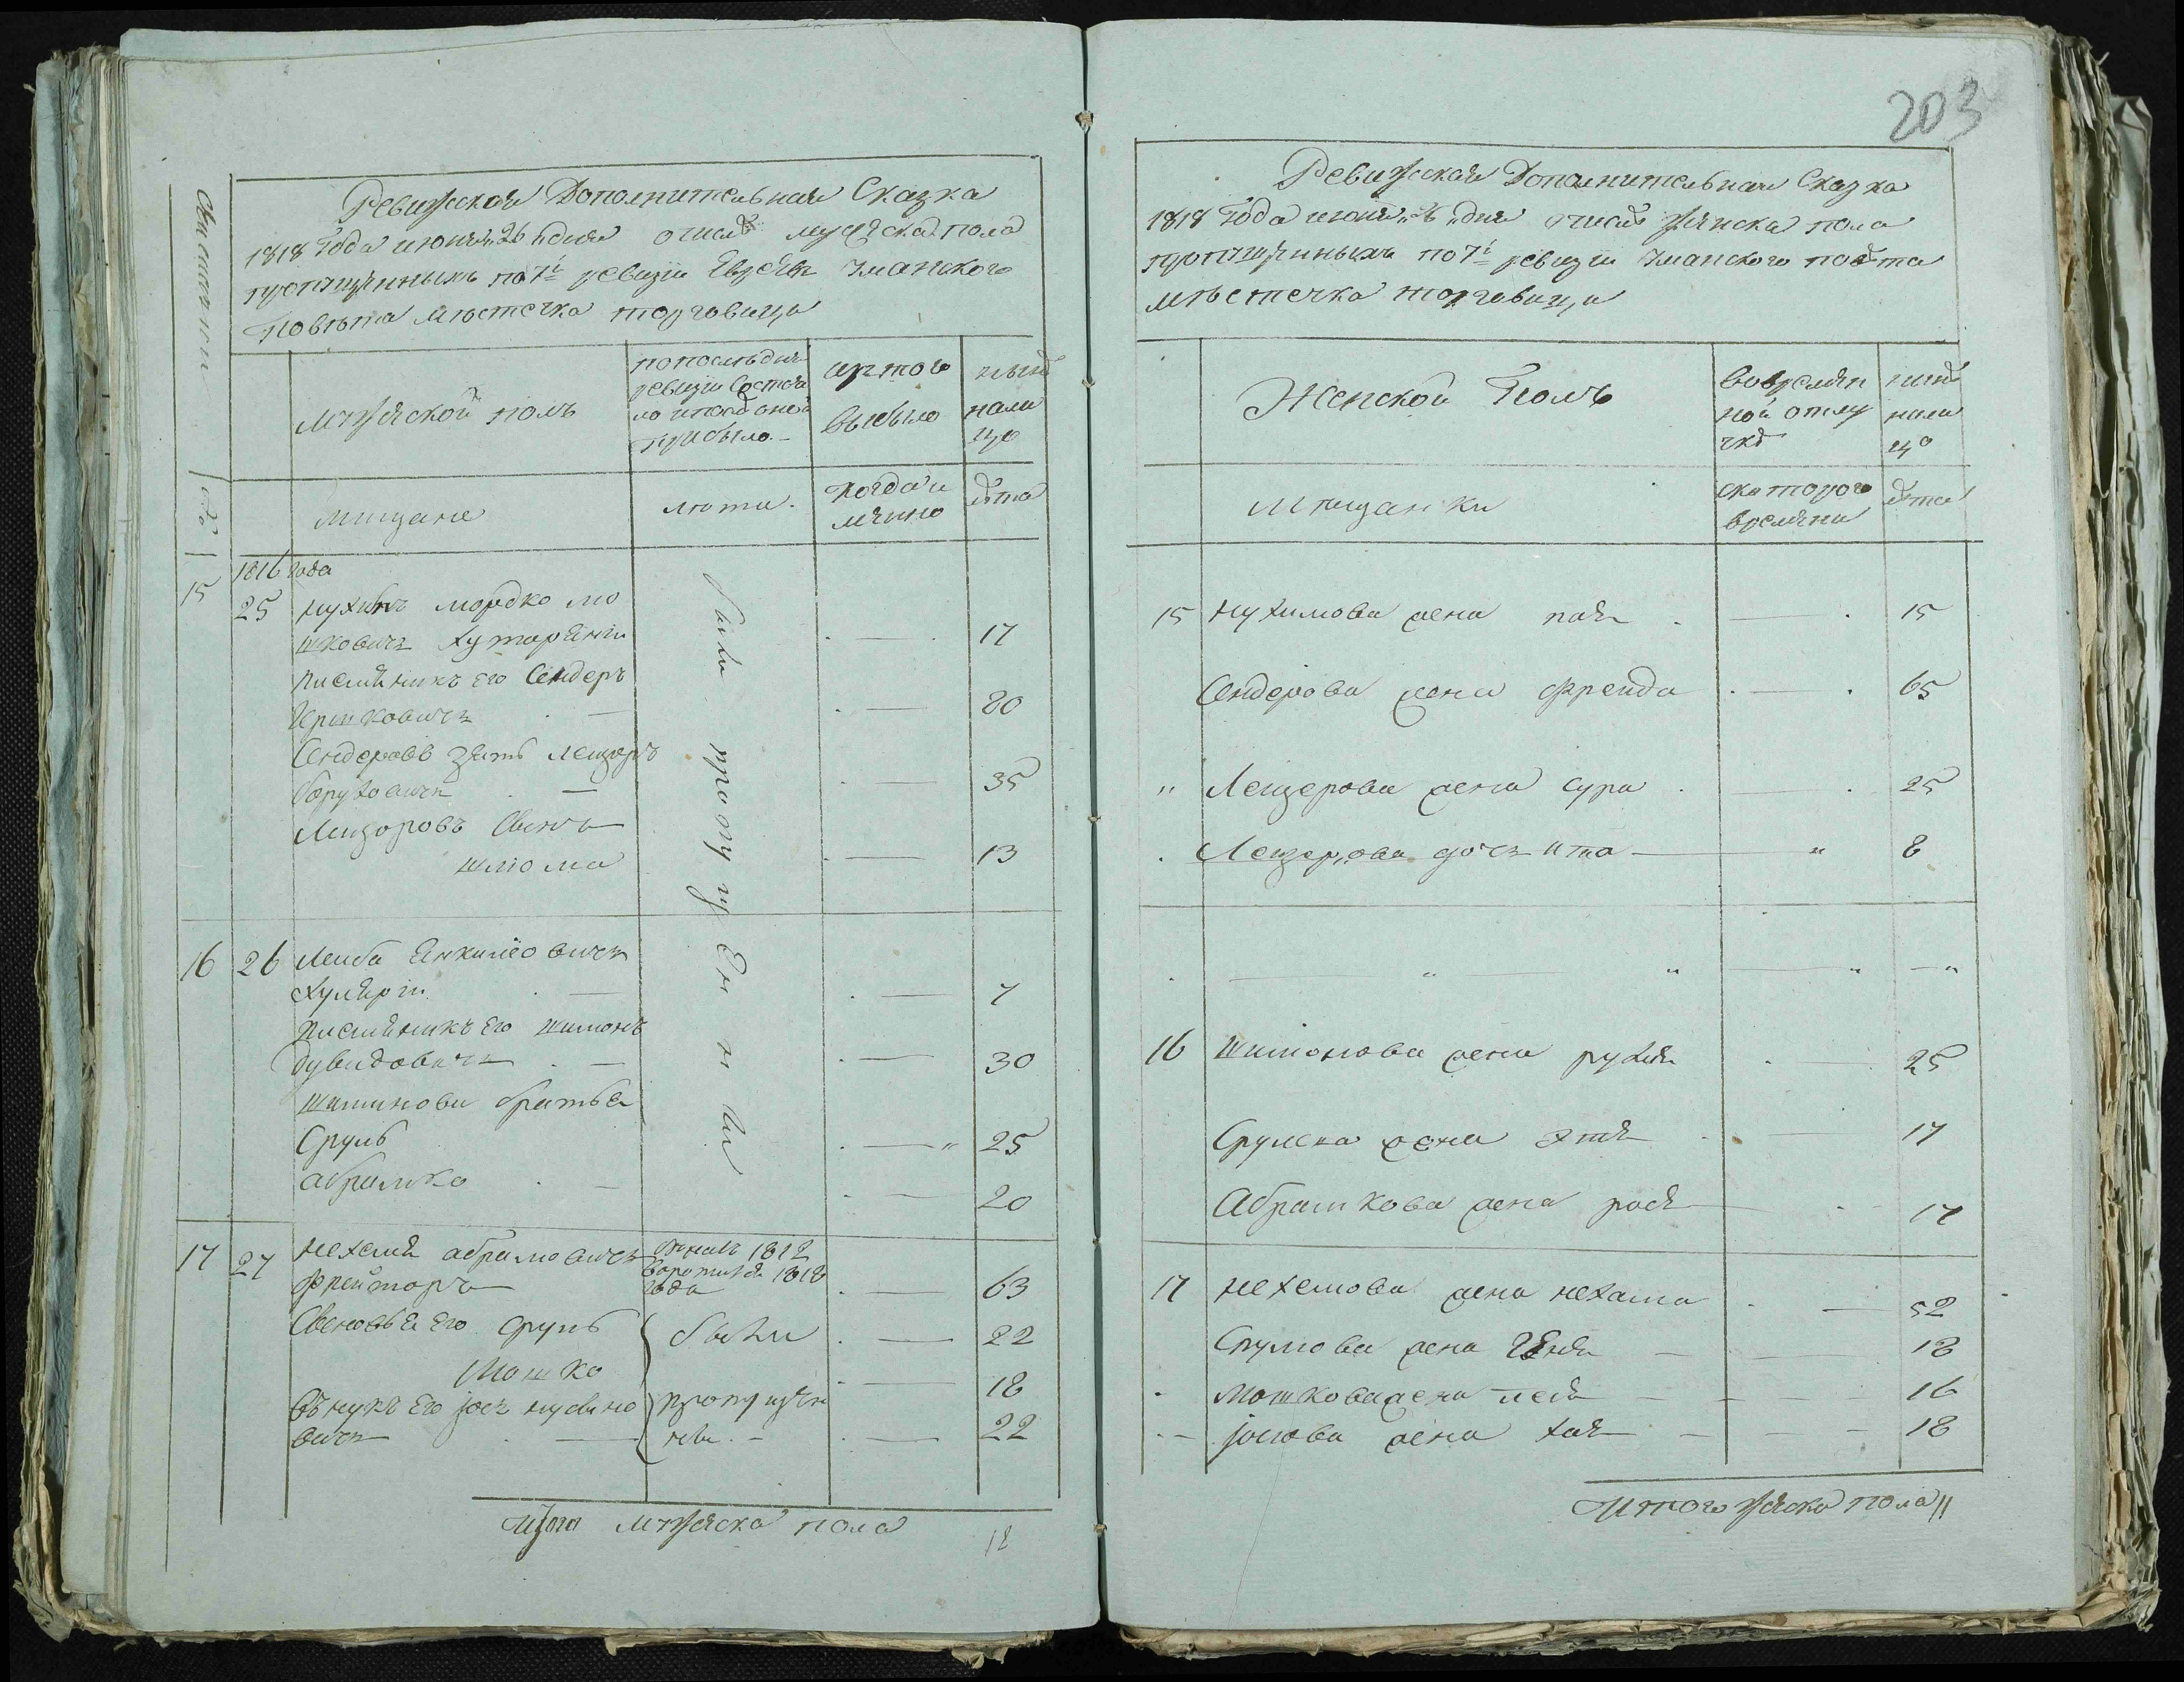 203
Ревижская Дополнительная Сказка
1818 Года июня 26 дня о числѣ мужеска пола
пропущенныхъ по 7й ревизіи Евреевъ Уманского
Повѣта Мѣстечка торговици
Мужеской полъ
попоследней
ревизіи Состоя
ло ипослѣ оной
Прибыло
изтого
выбыло
нынѣ
нали
цо
мищане
лѣти.
Когда и
лѣта
1816 года
15 25 Нухимъ мордко мо
шковичъ Хуторянин 17
племѣникъ Его Сендеръ
Гершковичъ 80
Сендеровъ зять Лейзоръ
Боруховичъ 35
Лейзоровъ Сынъ
шлѣома 13
16 26 Лейба Янкиліовичъ
7
племѣникъ Его шимонъ
Дувидовичъ 30
шимонови братья
Сруль 25
абрамко 20
17 27 Нехемя абрамовичъ
1812
1818
года
63
Сыновья Его Сруль 22
Мошко 18
внукъ Его Іось
вичъ 22
были пропущенни
были
пропущен
ни
Итого Мужеска пола 18
Ревижская Дополнительная Сказка
1818 Года июня 26 дня о числѣ женска пола
пропущенныхъ по 7й ревизіи Уманского повѣта
мѣстечка торговици
Женской Полъ
вовремян
ной отлу
чкѣ
нынѣ
нали
цо
Мищанки
скоторого
времени
лѣта
15 Нухимова жена 15
Сендерова жена Фрейда 65
Лейзерова жена Сура 25
Лейзерова дочь ита 8
16 Шимонова жена рухля 25
Срулева жена Этя 17
Абрамкова жена рося 17
17 Нехемова жена Нехама 52
Срулова жена Геня 18
Мошкова жена лея 16
Іосіова жена хая 18
Итого женска пола 11